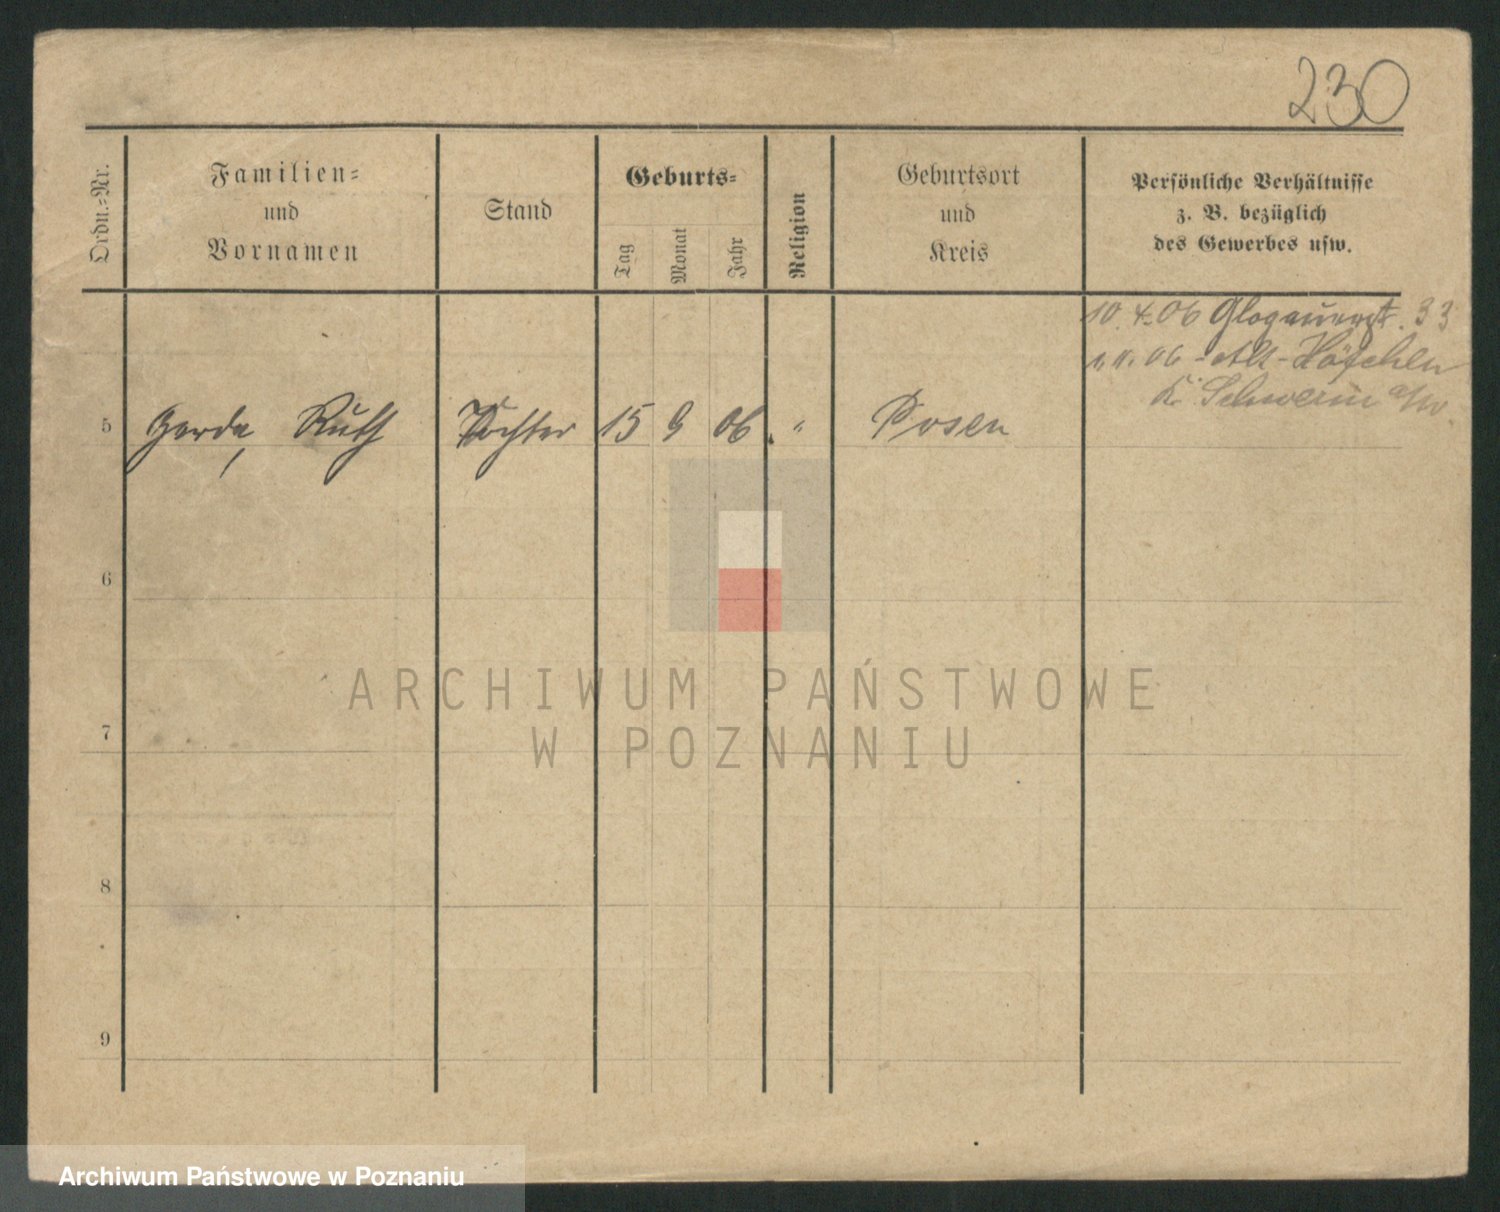 230
Ordn.-Nr.
Familien-
und
Vornamen
Stand
Geburts-
Tag
Monat
Jahr
Religion
Geburtsort
und
Kreis
Persönliche Verhältnisse
z. B. bezüglich
des Gewerbes usw.
10. 4. 06 Glogauerstr. 33
11. 06 - Alt-Höfchen
Kr. Schwerin a/W
5 Gerda, Ruth Tochter 15 9 06 " Posen
6
7
8
9
ARCHIWUM PAŃSTWOWE
W POZNANIU
Archiwum Państwowe w Poznaniu